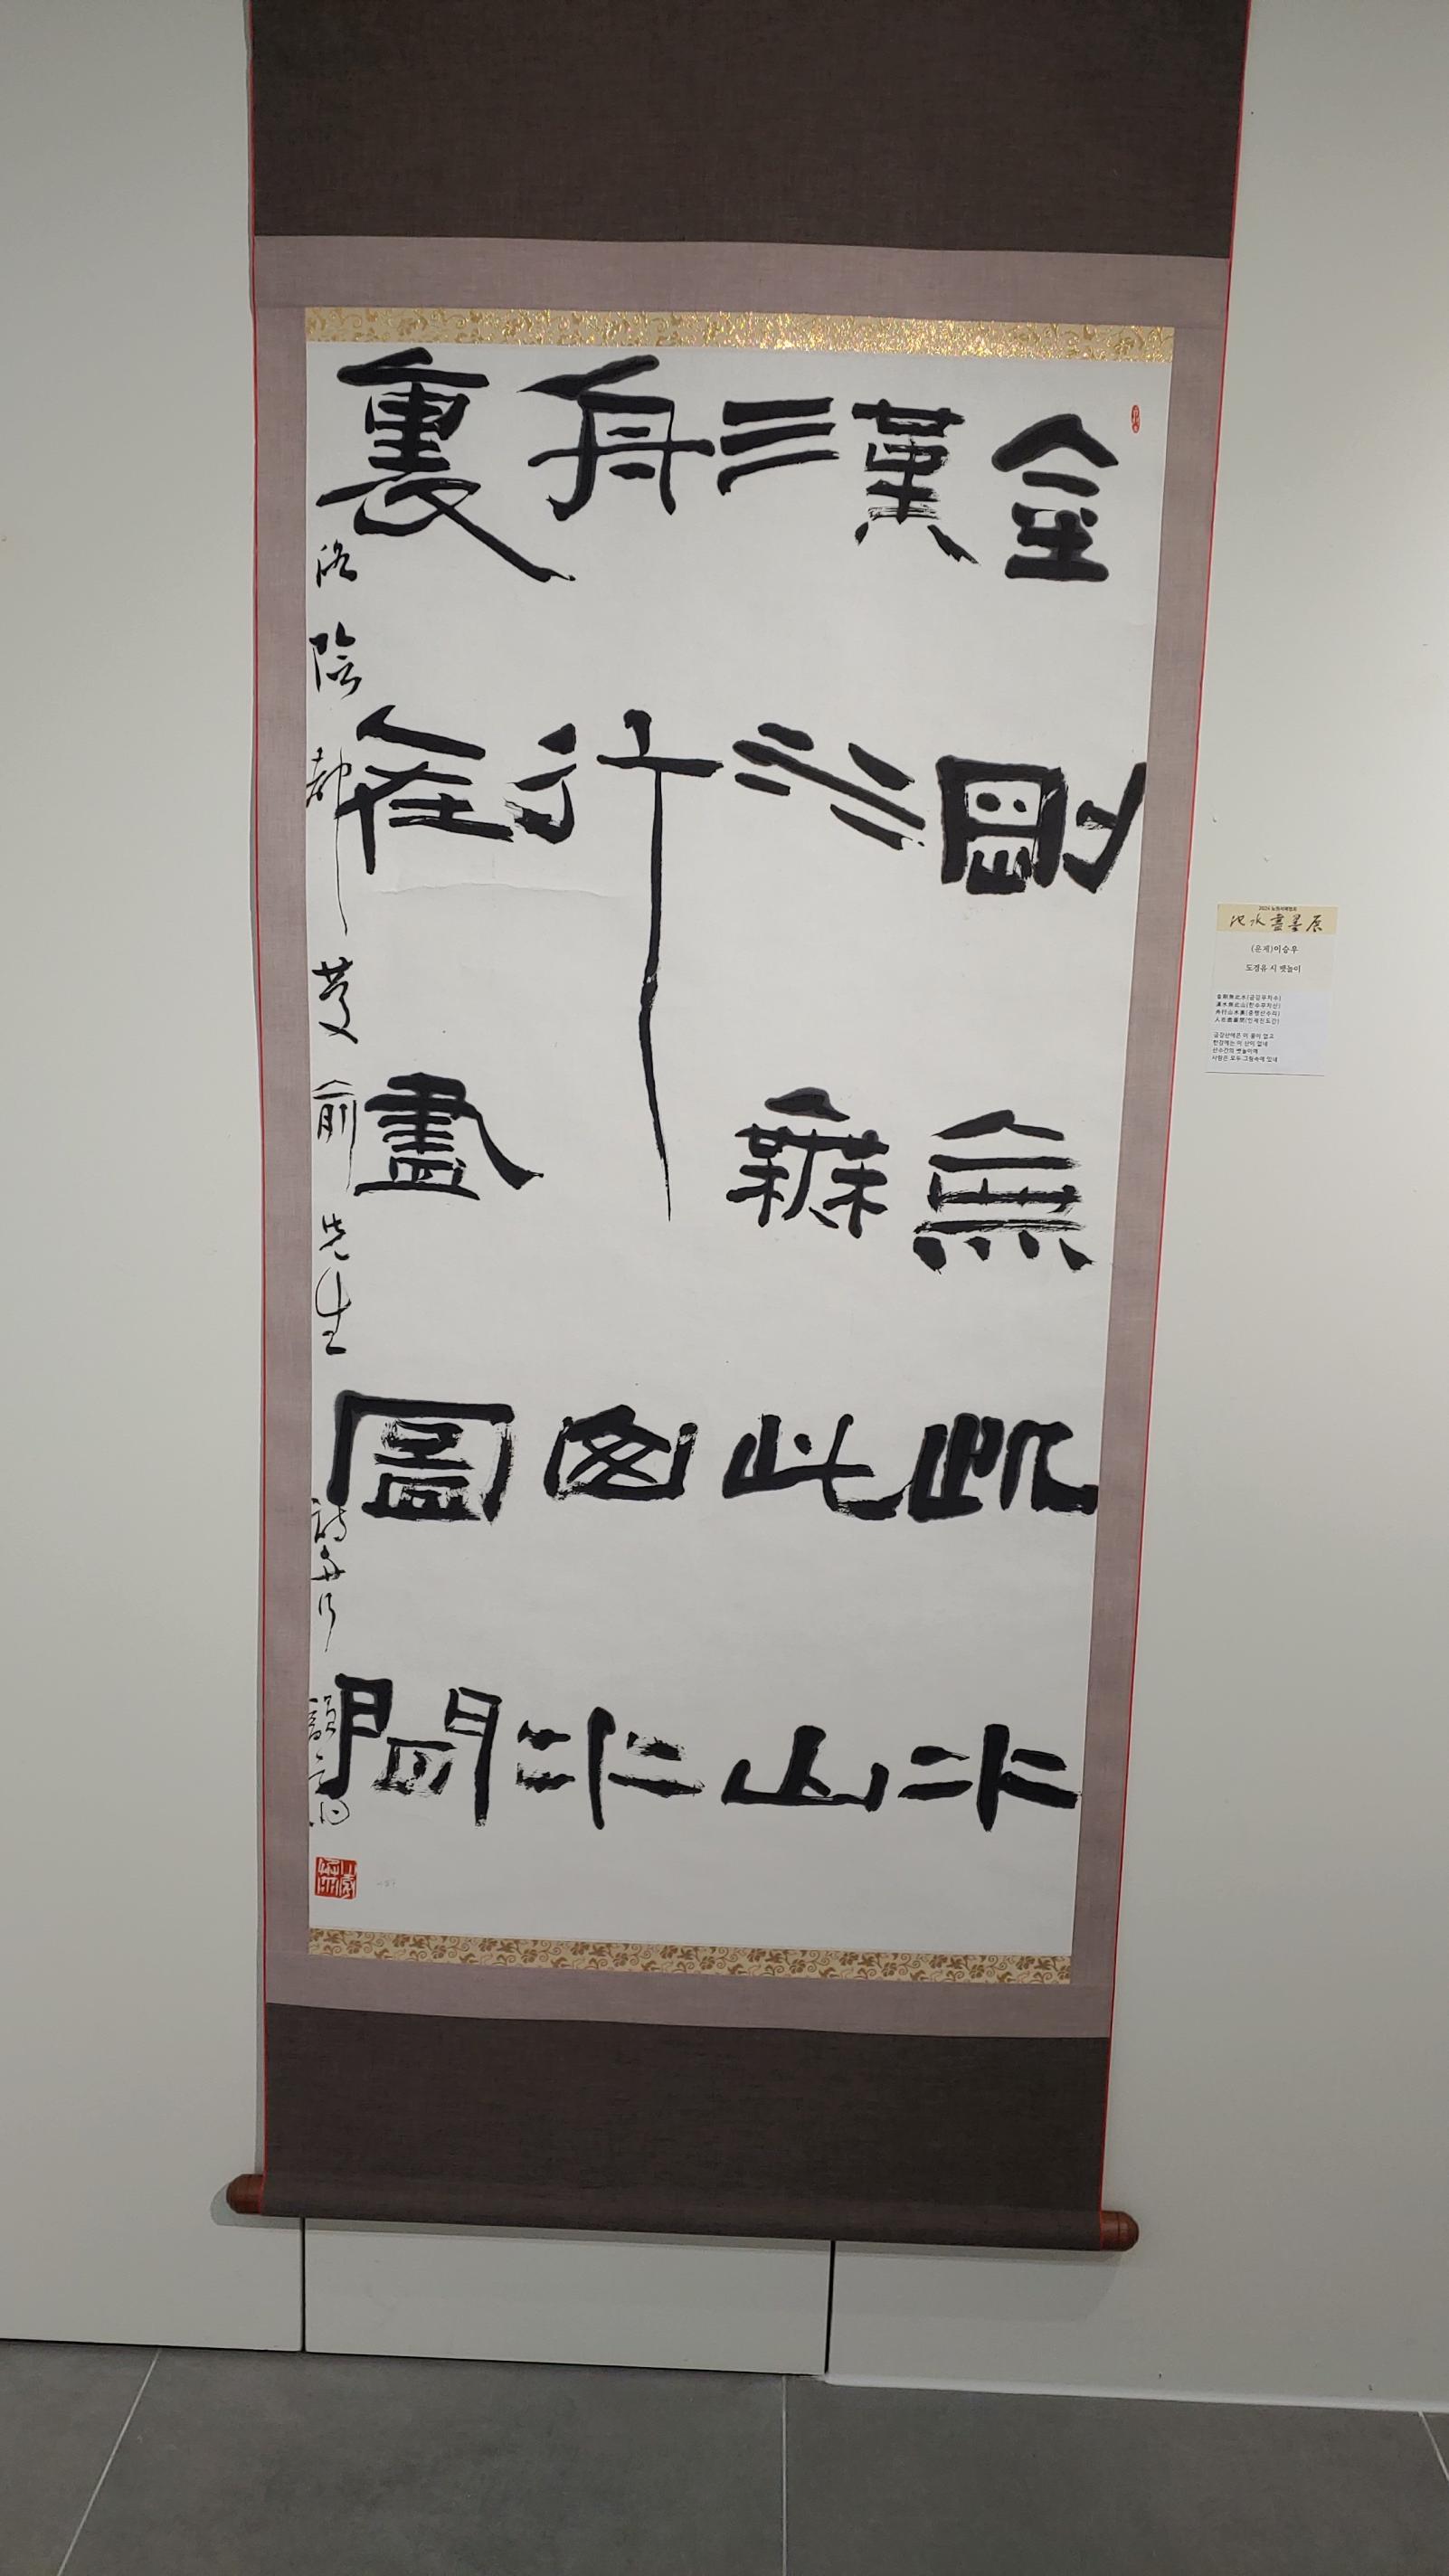 金剛無此水
漢水無此山
舟行山水
裏人在畫圖間
洛陰都慶兪先生詩舟行
池水盡墨展
(운제)이승우
도경유 시 뱃놀이
金剛無此水(금강무차수)
漢水無此山(한수무차산)
舟行山水裏(중행산수리)
人在盡圖間(인재진도간)
금강산에은 이 물이 없고
한강에는 이 산이 없네
산수간의 뱃놀이에
사람은 모두 그림속에 있네